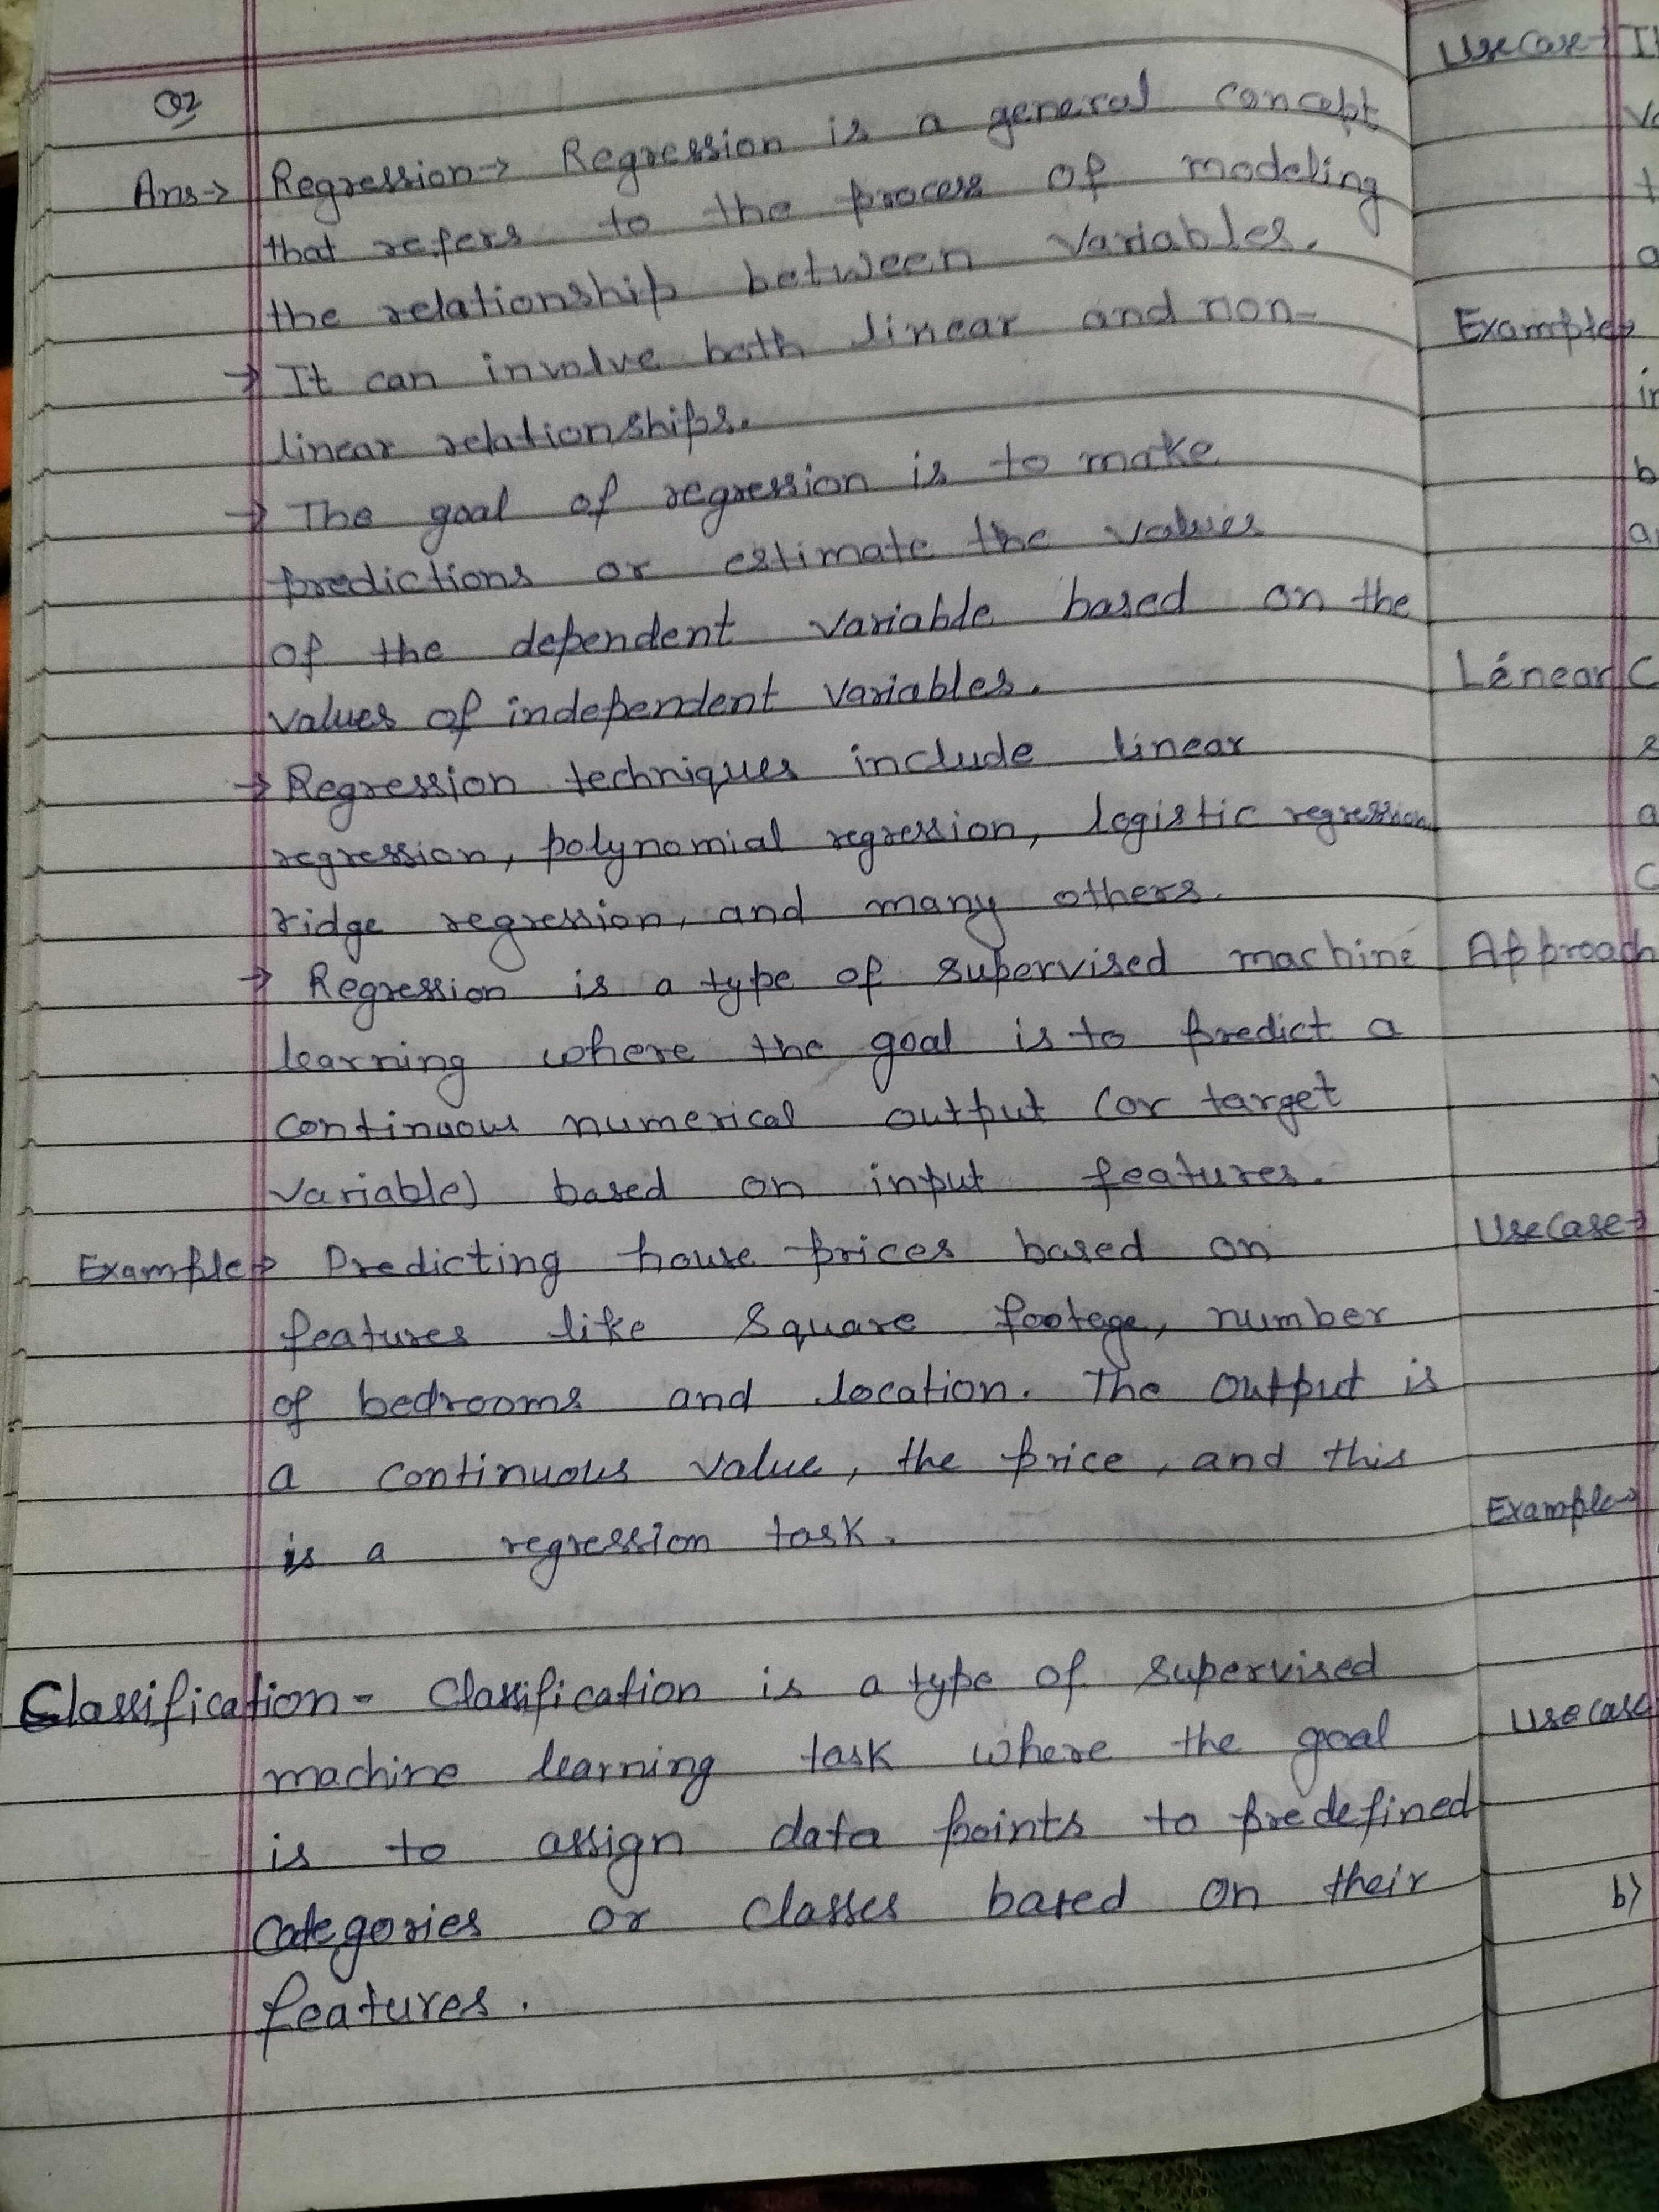 Q2
Ans→ Regression→ Regression is a general concept
that refers to the process of modeling
the relationship between variables.
→ It can involve both linear and non-
linear relationships.
→ The goal of regression is to make
predictions or estimate the values
of the dependent variable based on the
values of independent variables.
→ Regression techniques include linear
regression, polynomial regression, logistic regression,
ridge regression, and many others.
→ Regression is a type of supervised machine
learning where the goal is to predict a
continuous numerical output (or target
variable) based on input features.
Example→ Predicting house prices based on
features like square footege, number
of bedrooms and location. The output is
a continuous value, the price, and this
is a regression task.
Classification- Classification is a type of supervised
machine learning task where the goal
is to assign data points to predefined
categories or classes based on their
features.
Use Case→
Example→
Linear
Approach
Use Case→
Example→
Use case
b)